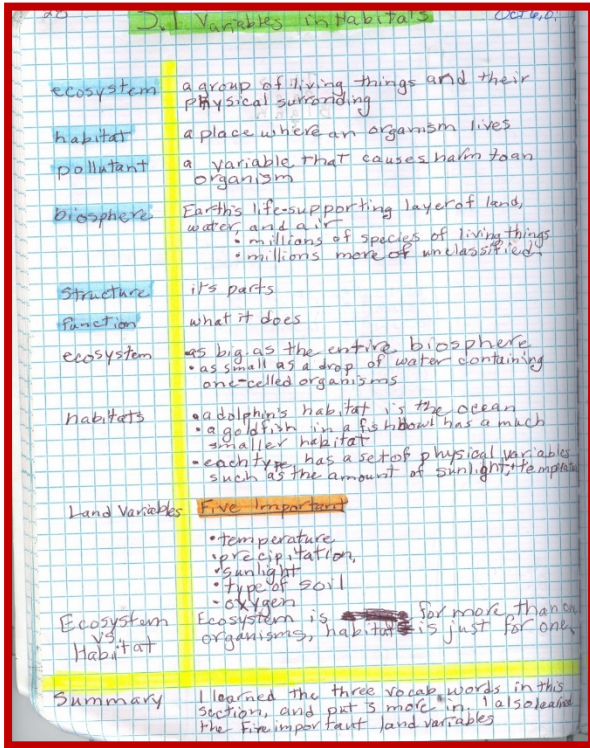 20 J.1 Variables in Habitats Oct 6,0
ecosystem a group of living things and their
physical surronding
habitat a place where an organism lives
pollutant a variable that causes harm to an
organism
biosphere Earth's life-supporting layer of land,
water, and air
• millions of species of living things
• millions more of unclassified.
Structure it's parts
function what it does
ecosystem •as big as the entire biosphere
•as small as a drop of water containing
one-celled organisms
habitats •a dolphin's habitat is the ocean
•a goldfish in a fishbowl has a much
smaller habitat
•each type has a set of physical variables
such as the amount of sunlight, + temperatu
Land Variables Five Important
•temperature
•precipitation,
•sunlight
•type of soil
•oxygen
Ecosystem Ecosystem is for more than on
vs organisms, habitat is just for one.
Habitat
Summary I learned the three vocab words in this
section, and put 3 more in. I also learned
the five important land variables